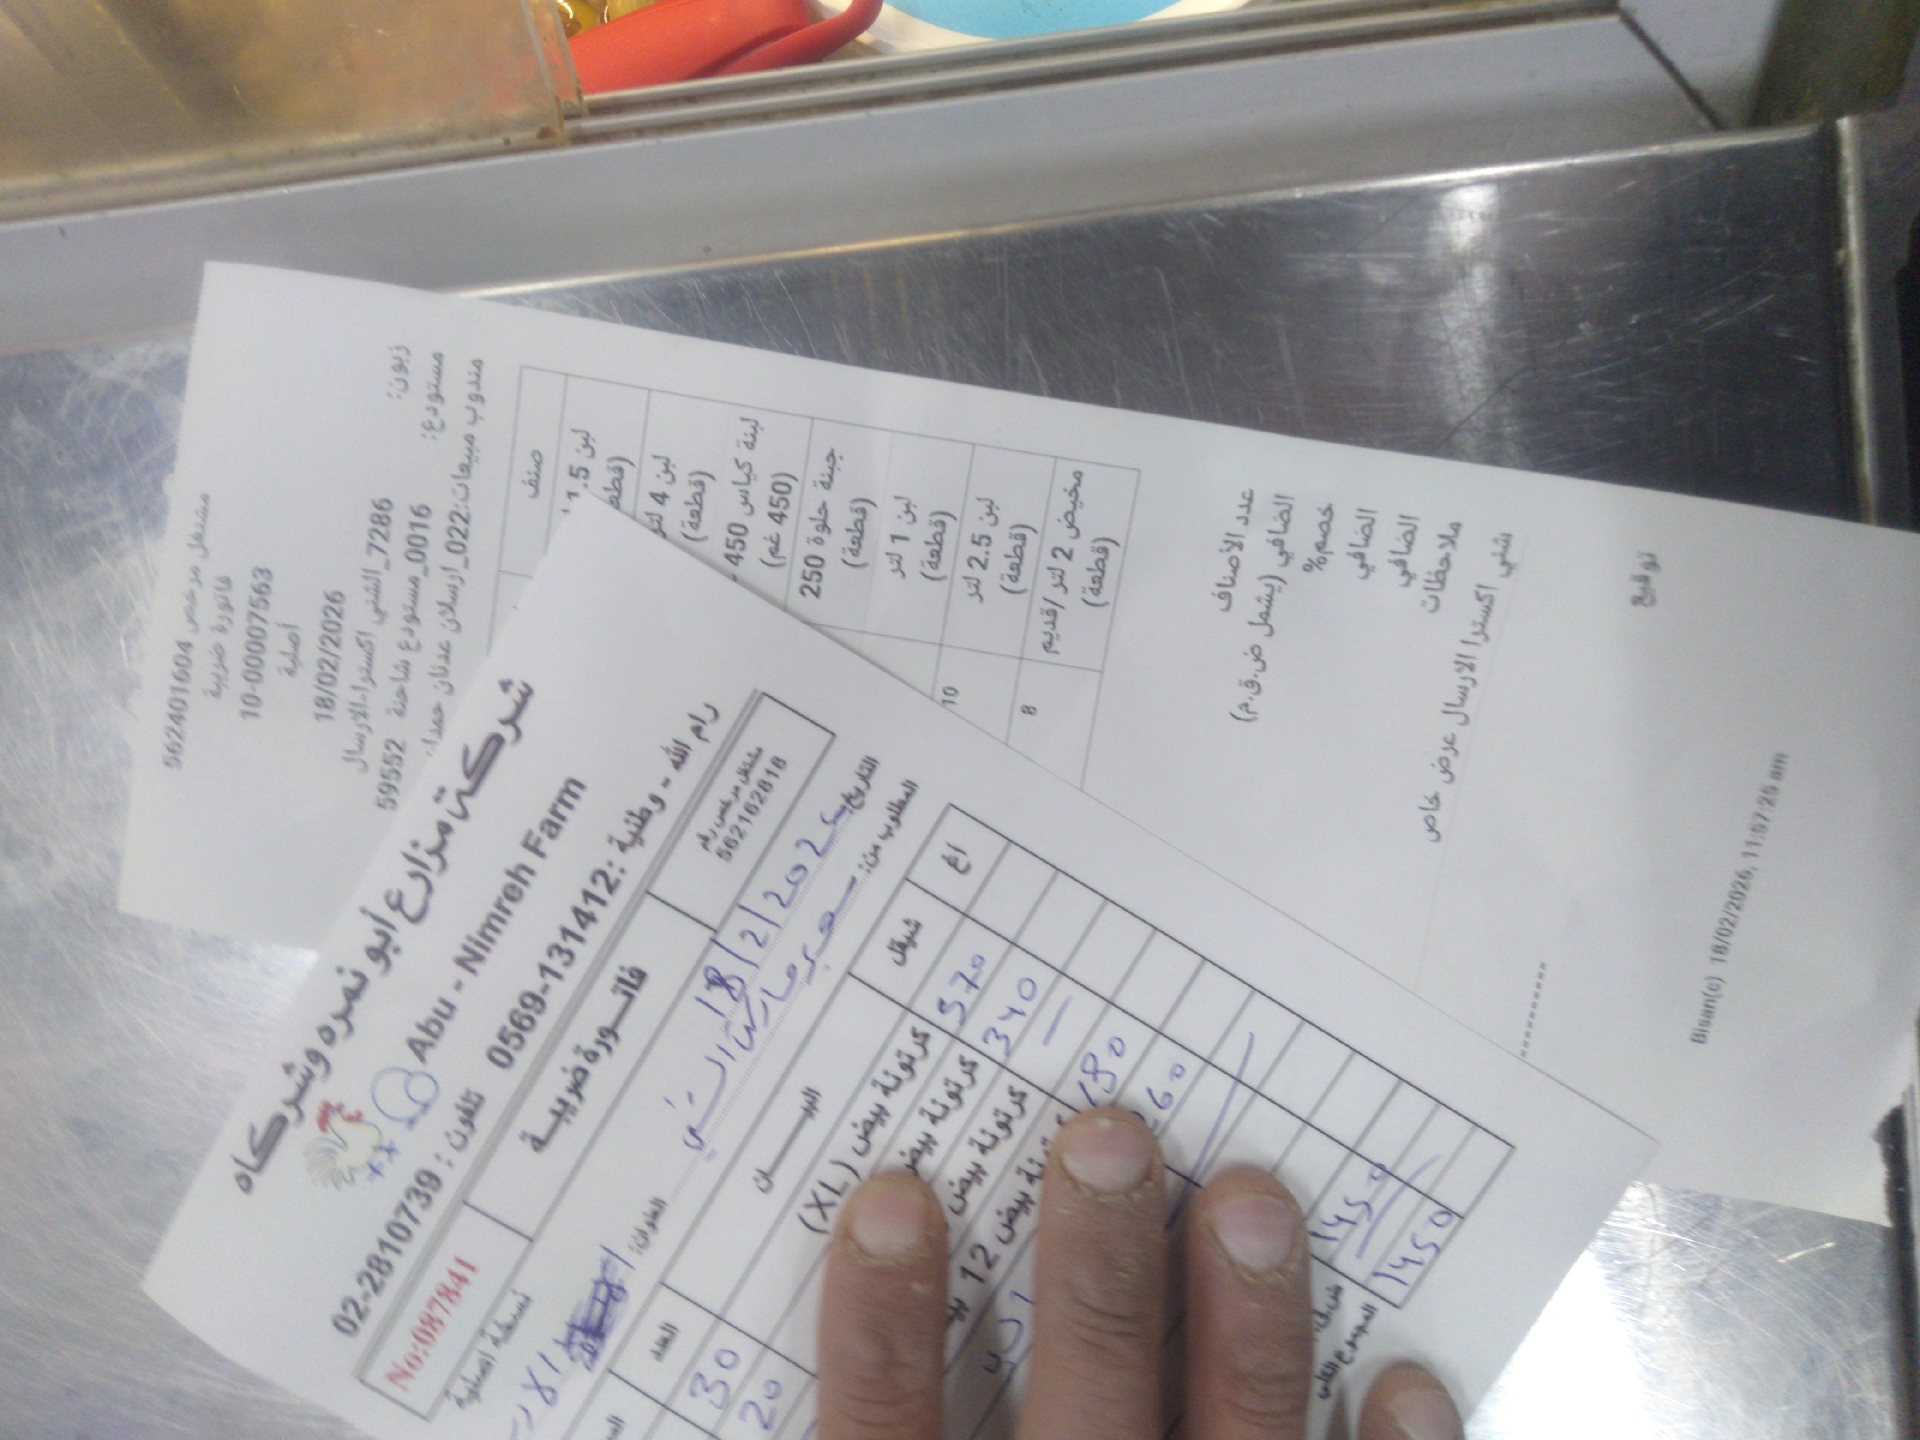 مشتغل مرخص 562401604
فاتورة ضريبية
10-000007563
أصلية
18/02/2026
زبون: 7286_الشني اكسترا-الارسال
مستودع: 0016_مستودع شاحنة 59552
مندوب مبيعات: 022_ارسلان عدنان حمدا
صنف
لبن 1.5
(قطعة
لبن 4 لتر
(قطعة)
لبنة كياس 450 -
(450 غم)
جبنة حلوة 250
(قطعة)
لبن 1 لتر
(قطعة)
لبن 2.5 لتر
(قطعة)
10
مخيض 2 لتر/قديم
(قطعة)
8
عدد الأصناف
الصافي (يشمل ض.ق.م)
خصم%
الصافي
الصافي
ملاحظات
شني اكسترا الارسال عرض خاص
توقيع
Bisan(c) 18/02/2026, 11:57:25 am
شركة مزارع أبو نمره وشركاه
Abu - Nimreh Farm
رام الله - وطنية: 0569-131412 تلفون: 02-2810739
مشتغل مرخص رقم
562162818
فاتورة ضريبية
No:087841
نسخة أصلية
التاريخ: 18/2/202
المطلوب من:
العنوان:
اغ شيقل البيان العدد
570 كرتونة بيض (XL) 30
340 كرتونة بيض 20
كرتونة بيض
180 بيض 12
260
1450
المجموع الكلي 1450